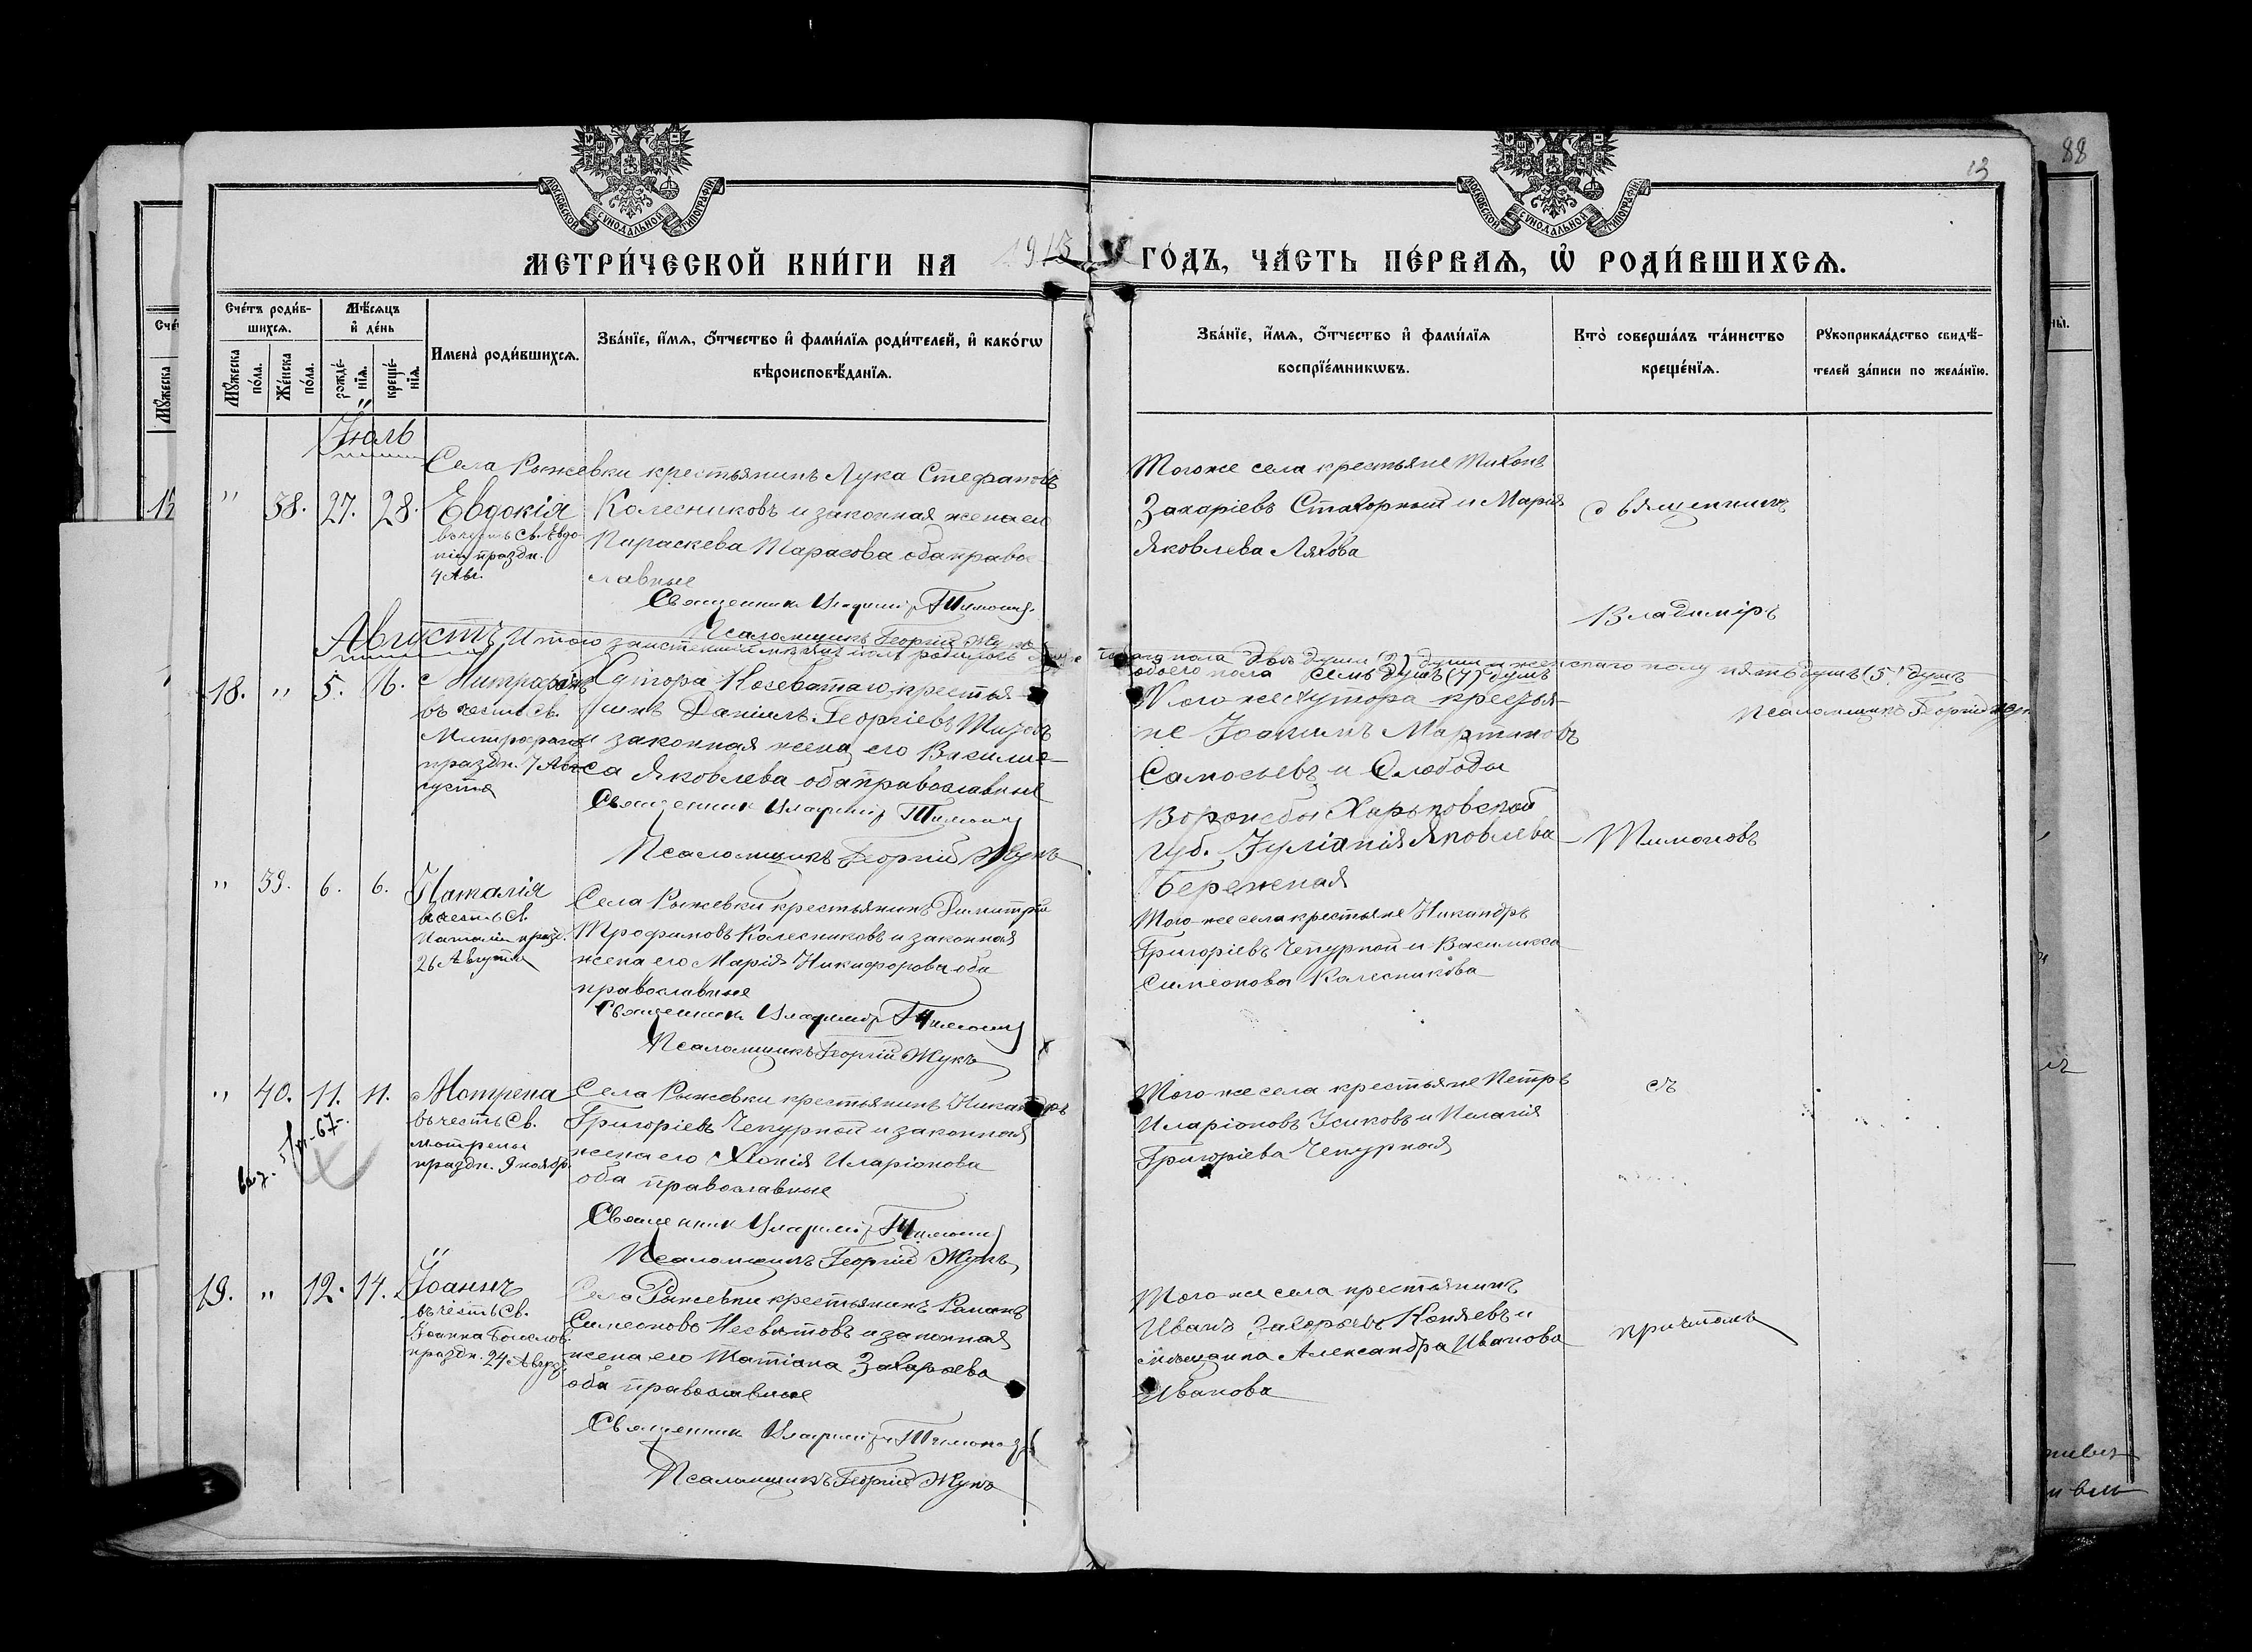 МОСКОВСКОЙ СУНОДАЛЬНОЙ ТИПОГРАФІИ
МОСКОВСКОЙ СУНОДАЛЬНОЙ ТИПОГРАФІИ
13
88
МЕТРИ́ЧЕСКОЙ КНИ́ГИ НА 1913 ГО́ДЪ, ЧА́СТЬ ПЕ́РВАѦ, Ѡ РОДИ́ВШИХСѦ.
Сче́тъ роди́в-
шихсѧ.
Мꙋ́жеска по́ла.
Же́нска по́ла.
Мѣ́сѧцъ
и де́нь
рожде́-
нїѧ.
креще́-
нїѧ.
Имена̀ роди́вшихсѧ.
Зва́нїе, и́мѧ, о́тчество и фами́лїѧ роди́телей, и како́гѡ
вѣроисповѣ́данїѧ.
Зва́нїе, и́мѧ, о́тчество и фами́лїѧ
воспрїе́мникѡвъ.
Кто̀ соверша́лъ та́инство
креще́нїѧ.
Рꙋкоприкла́дство свидѣ́-
телей за́писи по жела́нїю.
Іюль
" 38. 27. 28.
Евдокія
въ честь Св. Евдо-
кіи праздн.
4 Авг.
Села Рыжевки крестьянинъ Лука Стефановъ
Колесниковъ и законная жена его
Параскева Тарасова оба право-
славные
Священникъ Владиміръ Тимоновъ
Псаломщикъ Георгій Жукъ
Тогоже села крестьяне Тихонъ
Захаріевъ Стахорный и Марія
Яковлева Ляхова
Священникъ
Владиміръ
Тимоновъ
съ
причтомъ
Августъ
Итого
пола двѣ души (2) души и женскаго полу пять душъ (5) душъ
обоего пола семь душъ (7) душъ
Псаломщикъ Георгій Жукъ
18. " 5. 6.
Митрофанъ
въ честь Св.
Митрофана
праздн. 7 Ав-
густа
Хутора Козеватаго крестья-
нинъ Даніилъ Георгіевъ
и законная жена его Васили-
са Яковлева оба православные
Священникъ Владиміръ Тимоновъ
Псаломщикъ Георгій Жукъ
Того же хутора крестья-
не Іоакимъ Мартиновъ
и Слободы
Воронсбы Харьковской
губ. Іуліанія Яковлева
Бережная
" 39. 6. 6.
Наталія
въ честь Св.
Наталіи празд.
26 Августа
Села Рыжевки крестьянинъ Димитрій
Трофимовъ Колесниковъ и законная
жена его Марія Никифорова оба
православные
Священникъ Владиміръ Тимоновъ
Псаломщикъ Георгій Жукъ
Того же села крестьяне Никандръ
Григоріевъ Чепурной и Василисса
Симеонова Колесникова
" 40. 11. 11.
Мотрена
въ честь Св.
Мотрены
праздн. 9 ноябр.
Села Рыжевки крестьянинъ Никандръ
Григоріевъ Чепурной и законная
жена его Хіонія Иларіонова
оба православные
Священникъ Владиміръ Тимоновъ
Псаломщикъ Георгій Жукъ
Того же села крестьяне Петръ
Иларіоновъ Усиковъ и Пелагія
Григоріева Чепурная
19. " 12. 14.
Іоаннъ
въ честь Св.
Іоанна Богослов.
праздн. 24 Авгус.
Села Рыжевки крестьянинъ Романъ
Симеоновъ Несвѣтовъ и законная
жена его Татіана Захарьева
оба православные
Священникъ Владиміръ Тимоновъ
Псаломщикъ Георгій Жукъ
Того же села крестьянинъ
Иванъ Захарьевъ Коняевъ и
мѣщанка Александра Иванова
Иванова